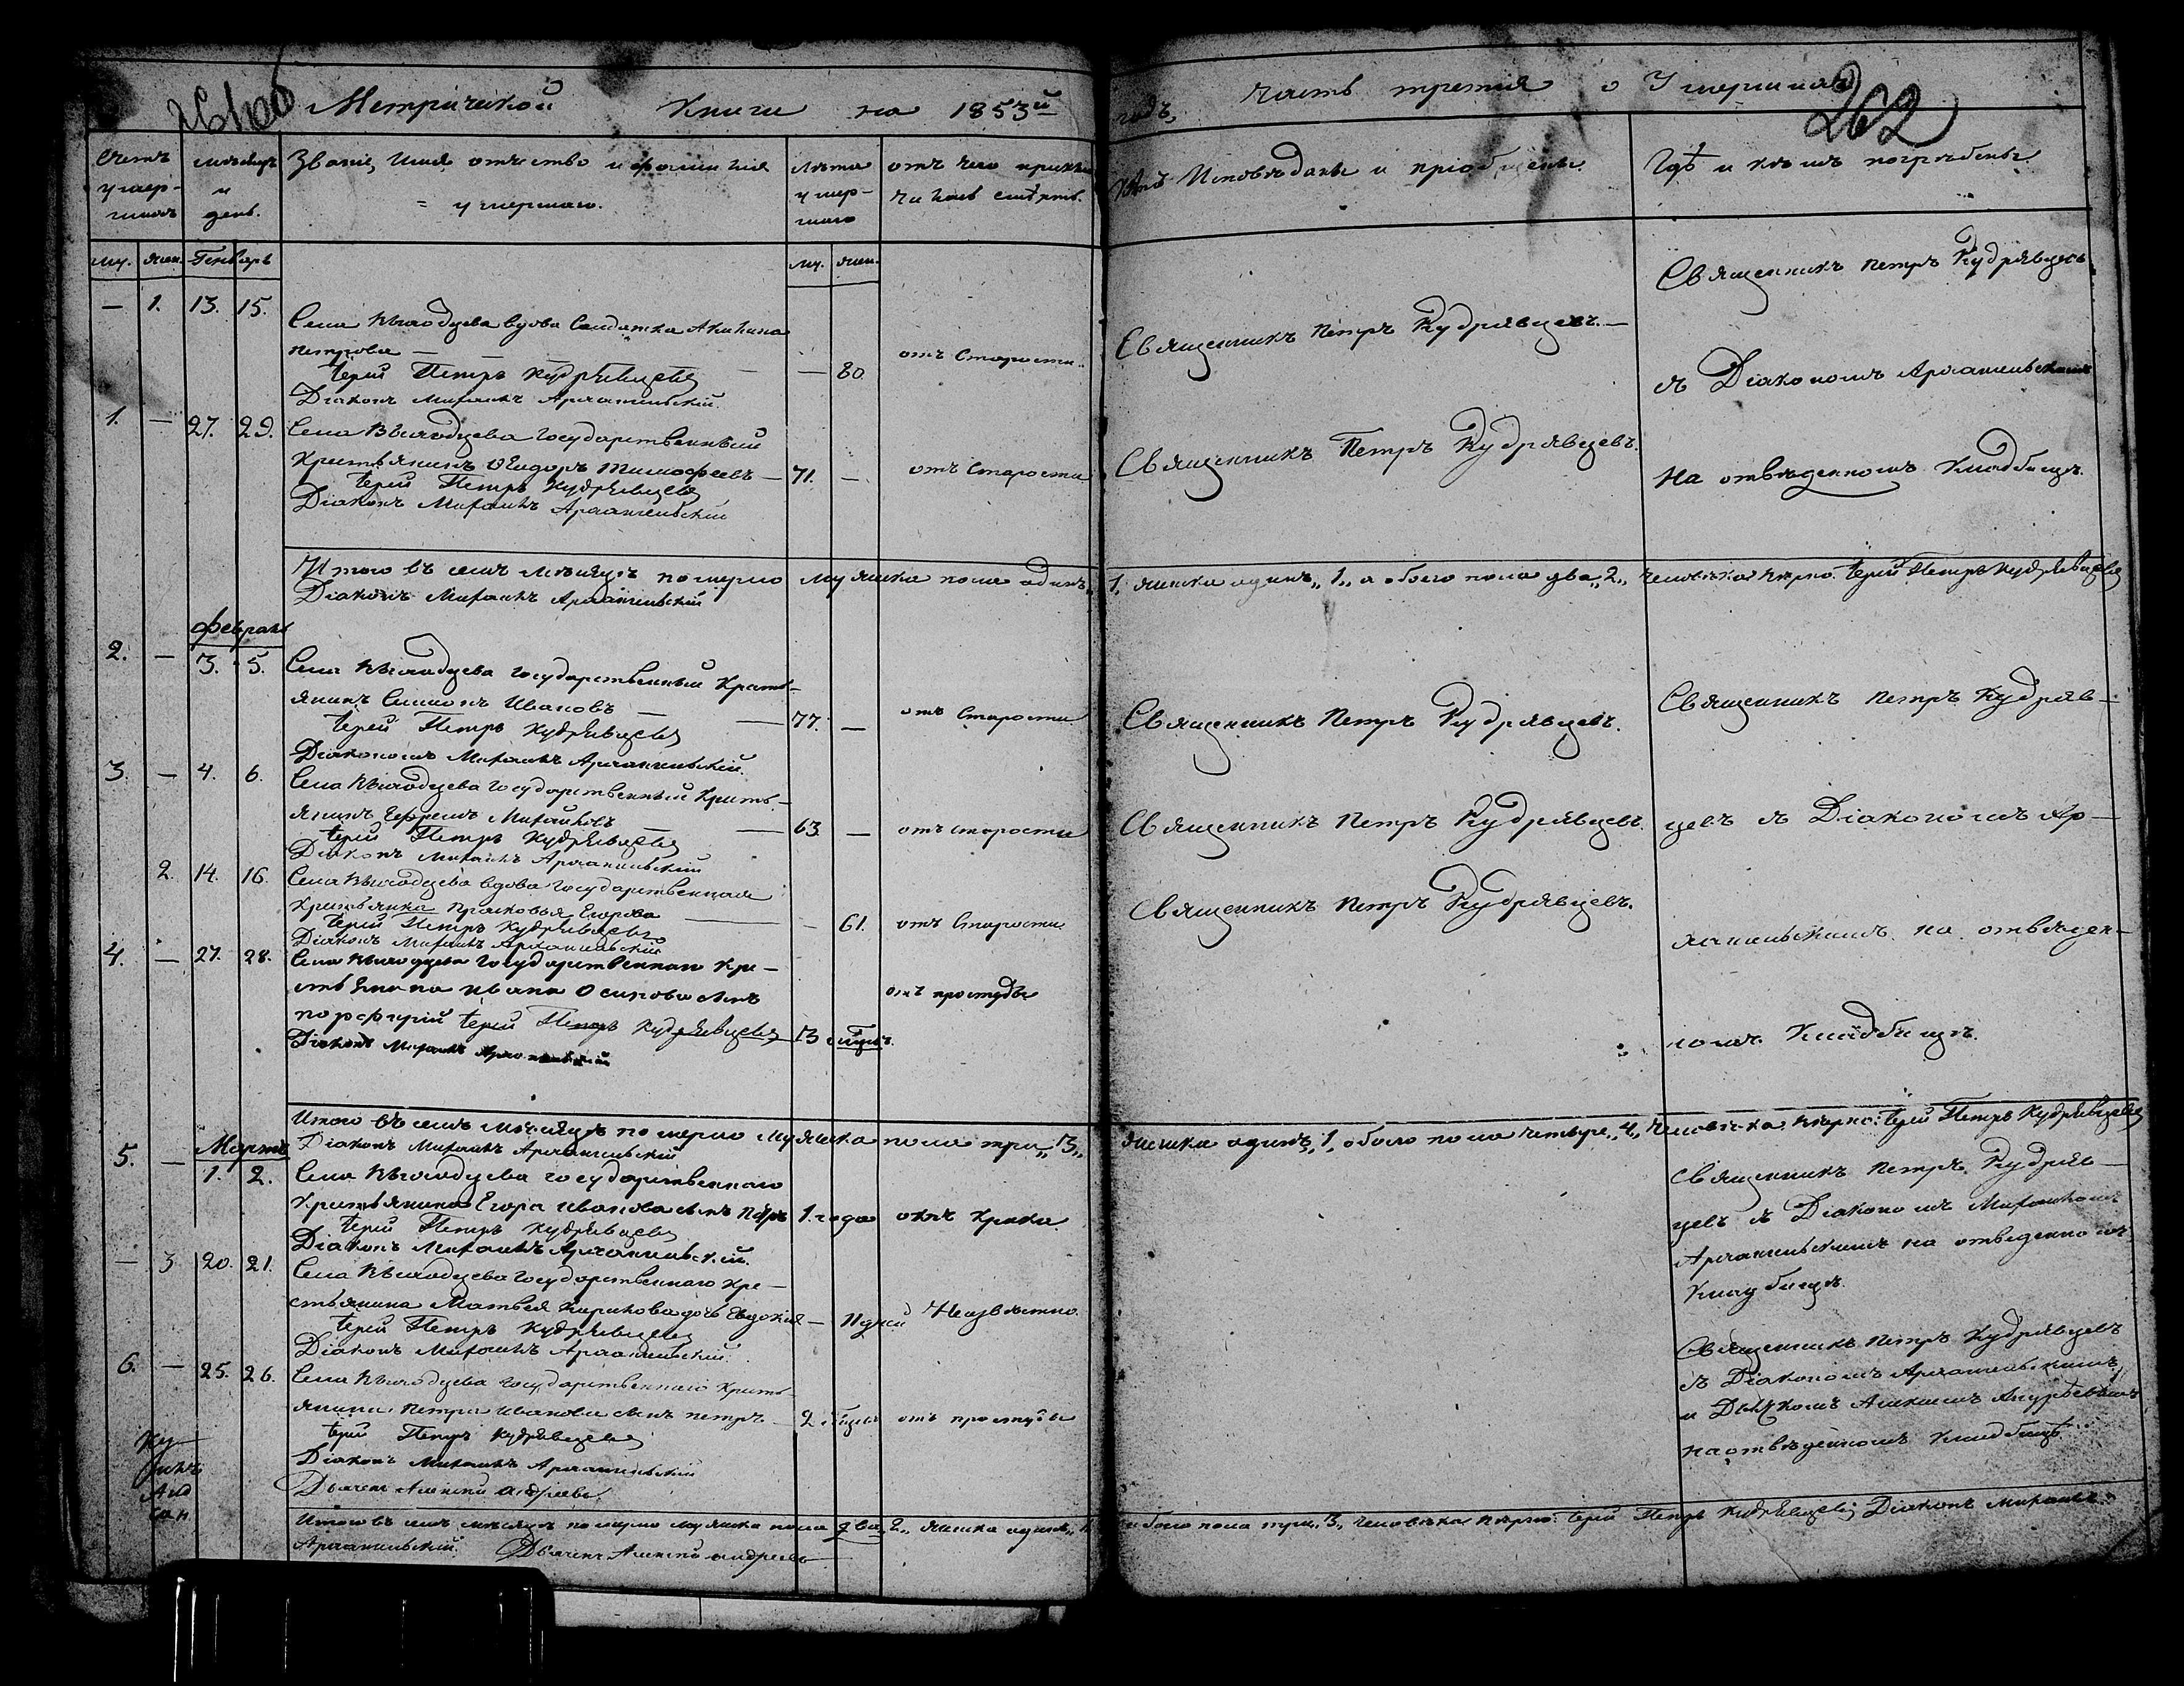 Метрической Книги на 1853й годъ, часть третія о Умершихъ
262
Счетъ умер-шихъ
мѣсяцъ и день.
Званіе, имя, отчество и фамилія умершаго.
Лѣта умер-шаго
отъ чего приклю-чилась смерть.
Кѣмъ Исповѣданы и пріобщены.
Гдѣ и кѣмъ погребены
му. жен. Генварь му. жен.
— 1. 13. 15.
Села вдова Солдатка Акилина
Петрова — — 80. отъ Старости.
Іерей Петръ Кудрявцевъ
Діаконъ Михаилъ Архангельскій.
Священникъ Петръ Кудрявцевъ.—
Священникъ Петръ Кудрявцевъ
съ Діакономъ Архангельскимъ
на отвѣденномъ Кладбищѣ.
1. — 27. 29.
Села Государственный
Крестьянинъ Ѳеодоръ Тимофеевъ — 71. — отъ Старости
Іерей Петръ Кудрявцевъ
Діаконъ Михаилъ Архангельскій
Священникъ Петръ Кудрявцевъ.
Итого въ семъ мѣсяцѣ померло мужеска пола одинъ „1„ женска одинъ „1„ а обоего пола два „2„ человѣка вѣрно. Іерей Петръ Кудрявцевъ
Діаконъ Михаилъ Архангельскій
Февраль
2. — 3. 5.
Села Государственный Кресть-
янинъ Симионъ Ивановъ — 77. — отъ Старости
Іерей Петръ Кудрявцевъ
Діакономъ Михаилъ Архангельскій.
Священникъ Петръ Кудрявцевъ.
Священникъ Петръ Кудряв-
3. — 4. 6.
Села Государственный Кресть-
янинъ Ефремъ Михайловъ — 63. — отъ старости
Іерей Петръ Кудрявцевъ
Діаконъ Михаилъ Архангельскій
Священникъ Петръ Кудрявцевъ.
цевъ съ Діакономъ Ар-
2. 14. 16.
Села вдова Государственная
Крестьянка Прасковья Егорова — 61. отъ Старости
Іерей Петръ Кудрявцевъ
Діаконъ Михаилъ Архангельскій
Священникъ Петръ Кудрявцевъ.
хангельскимъ на отвѣден-
4. — 27. 28.
Села Государственнаго Кре-
стьянина Ивана Осипова сынъ отъ простуды
Порфирій Іерей Петръ Кудрявцевъ
Діаконъ Михаилъ Архангельскій
номъ Кладбищѣ.
Итого въ семъ мѣсяцѣ померло мужеска пола три „3„ женска одинъ „1„ обоего пола четыре „4„ человѣка вѣрно: Іерей Петръ Кудрявцевъ
Діаконъ Михаилъ Архангельскій
Мартъ
5. — 1. 2.
Села Государственнаго
Крестьянина Егора Иванова сынъ Петръ 1. года отъ крика
Іерей Петръ Кудрявцевъ
Діаконъ Михаилъ Архангельскій.
Священникъ Петръ Кудряв-
цевъ съ Діакономъ Михаиломъ
Архангельскимъ на отведенномъ
Кладбищѣ.
— 3 20. 21.
Села Государственнаго Кре-
стьянина Матвея дочь Евдокія — 11 дней Неизвѣстно.
Іерей Петръ Кудрявцевъ
Діаконъ Михаилъ Архангельскій.
6. — 25. 26.
Села Государственнаго Кресть-
янина Петра Иванова сынъ Петръ отъ простуды
Іерей Петръ Кудрявцевъ
Діаконъ Михаилъ Архангельскій
Дьячекъ Алексій Андреевъ
Священникъ Петръ Кудрявцевъ
съ Діакономъ Архангельскимъ
и Дьячкомъ Алексіемъ
на отвѣденномъ Кладбищѣ
Итого въ семъ мѣсяцѣ померло мужеска пола два „2„ женска одинъ „1„ обоего пола три „3„ человѣка вѣрно: Іерей Петръ Кудрявцевъ Діаконъ Михаилъ
Архангельскій. Дьячекъ Алексій Андреевъ